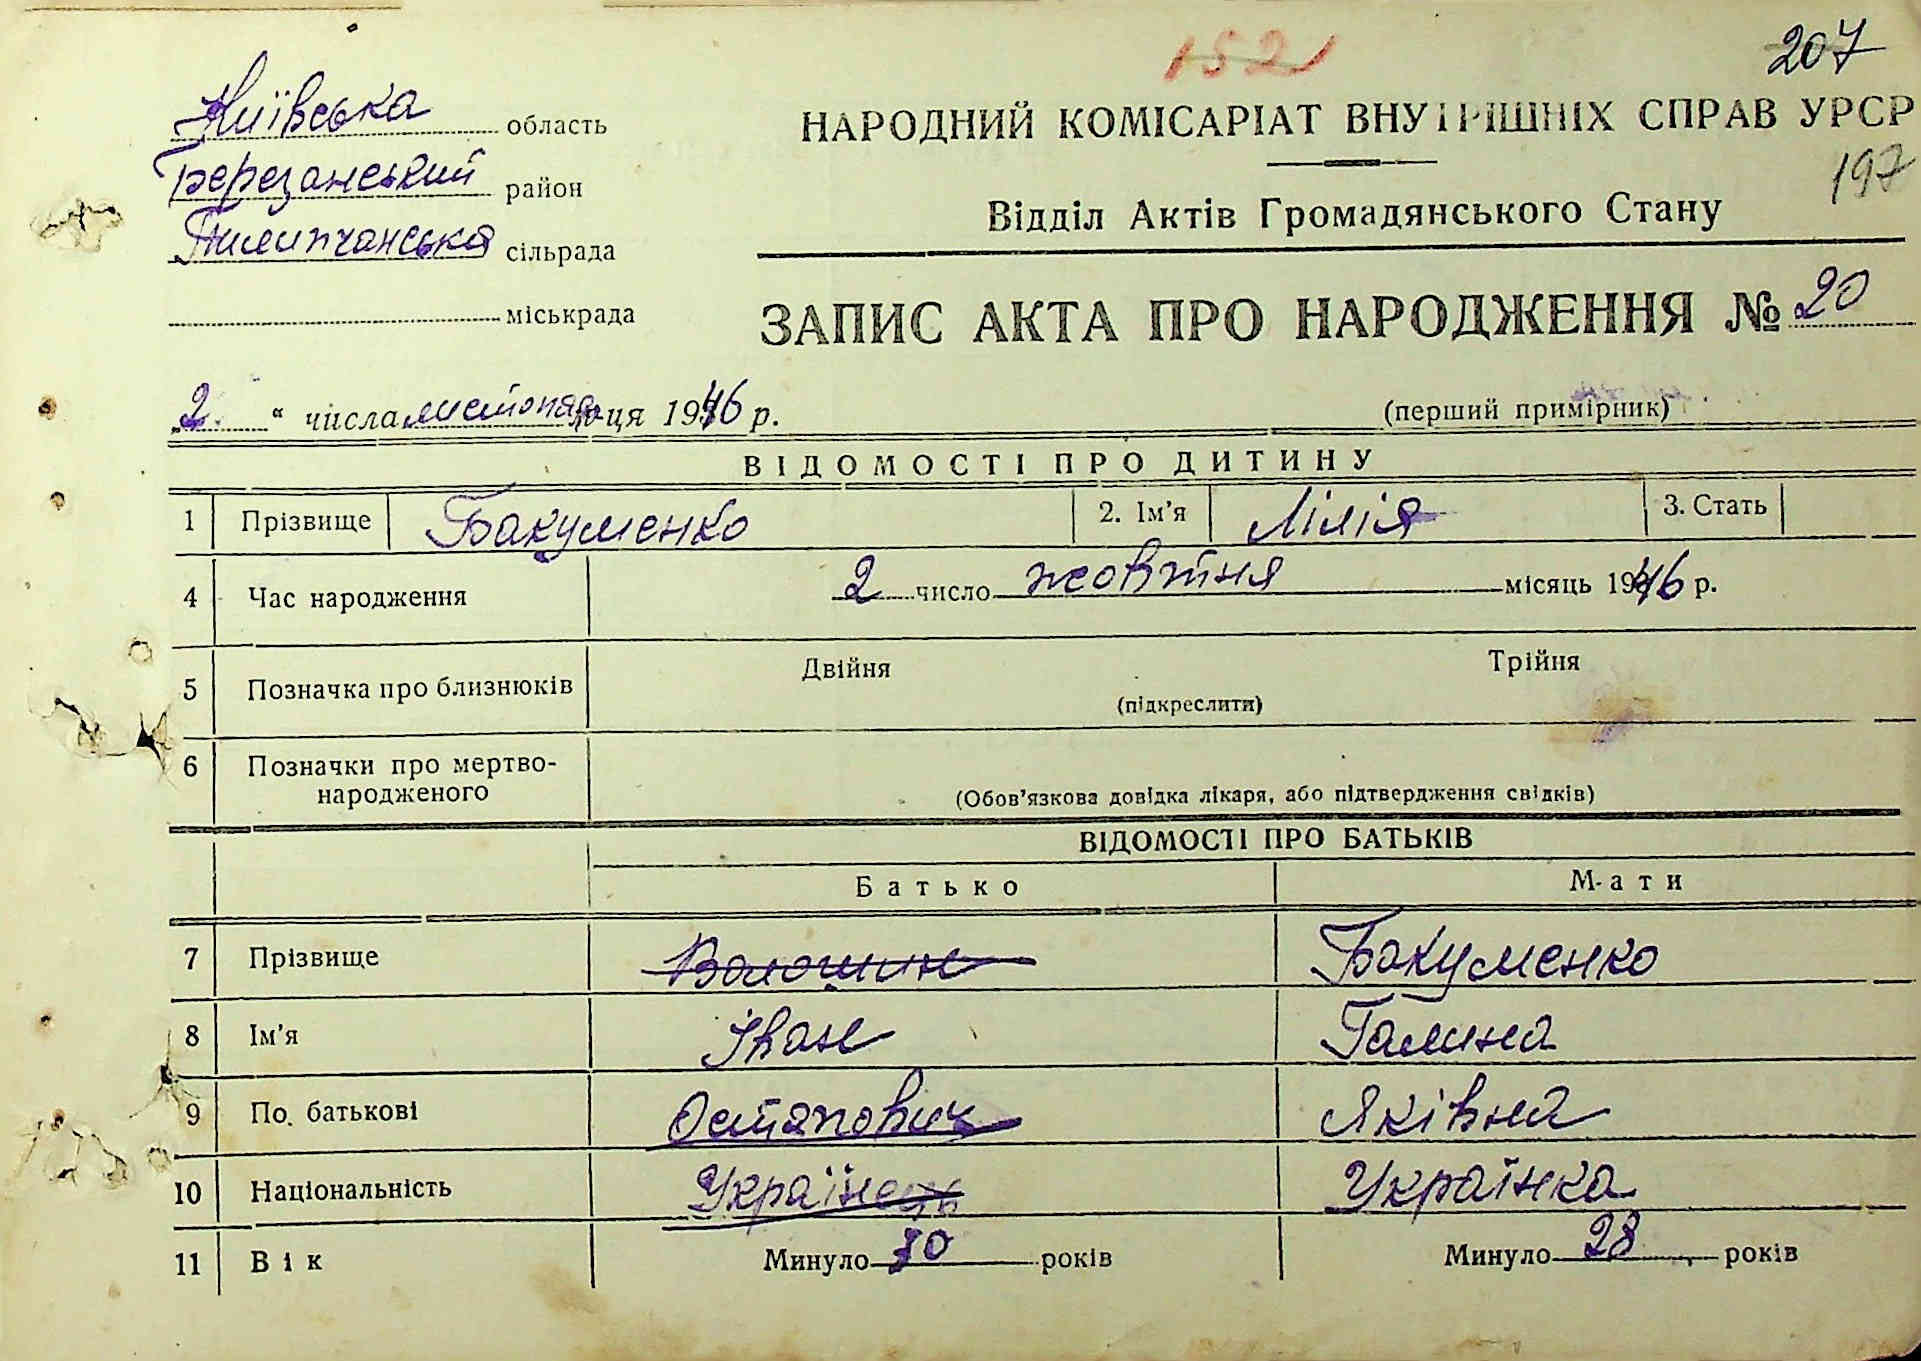 152
207
Київська область
НАРОДНИЙ КОМІСАРІАТ ВНУТРІШНІХ СПРАВ УРСР
197
Березанський район
Відділ Актів Громадянського Стану
Пилипчанська сільрада
міськрада
ЗАПИС АКТА ПРО НАРОДЖЕННЯ № 20
„2“ числа листопад м-ця 1946 р.
(перший примірник)
ВІДОМОСТІ ПРО ДИТИНУ
1 Прізвище Бакуменко 2. Ім'я Лілія 3. Стать
4 Час народження 2 число жовтня місяць 1946 р.
5 Позначка про близнюків Двійня Трійня
(підкреслити)
6 Позначки про мертво-
народженого
(Обов'язкова довідка лікаря, або підтвердження свідків)
ВІДОМОСТІ ПРО БАТЬКІВ
Батько М-ати
7 Прізвище Волошин Бакуменко
8 Ім'я Іван Галина
9 По. батькові Остапович Яківна
10 Національність Українець Українка
11 Вік Минуло 30 років Минуло 28 років